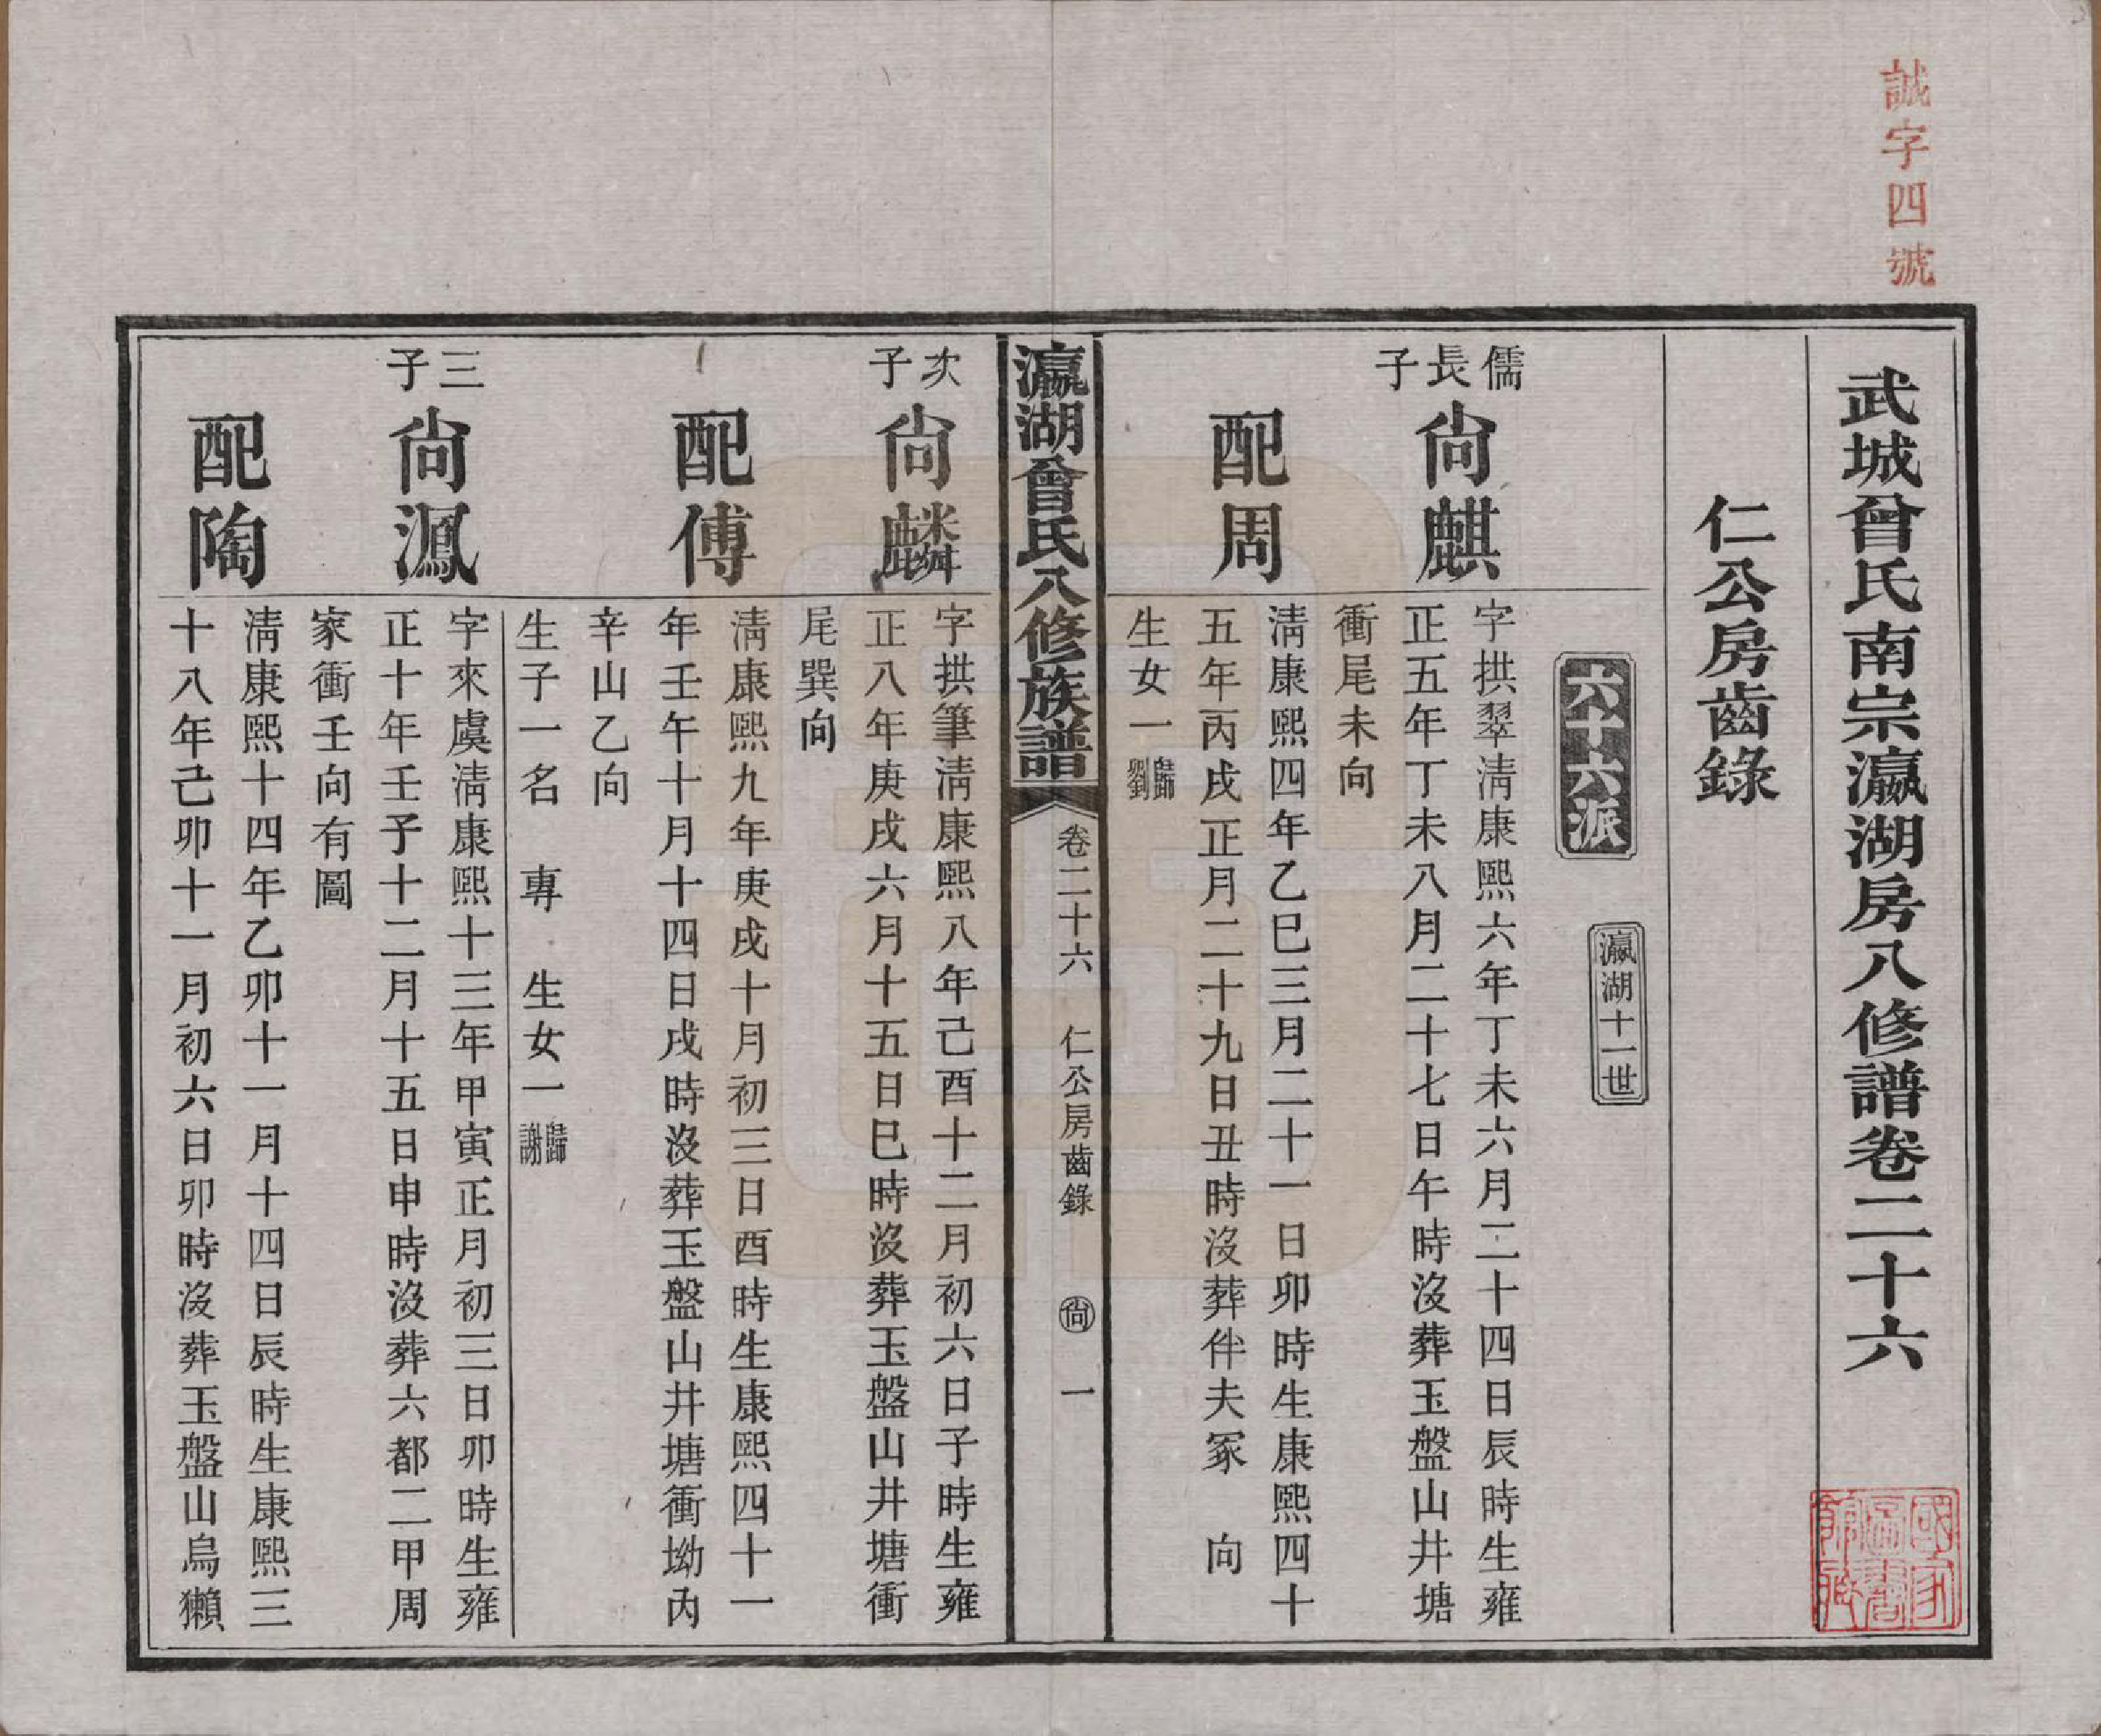 誠字四號
武城曾氏南宗瀛湖房八修譜卷二十六
仁公房齒錄
六十六派
瀛湖十一世
儒長子
尙麒
字拱翠淸康熙六年丁未六月二十四日辰時生雍
正五年丁未八月二十七日午時沒葬玉盤山井塘
衝尾未向
配周
淸康熙四年乙巳三月二十一日卯時生康熙四十
五年丙戌正月二十九日丑時沒葬伴夫冢　向
生女一歸劉
瀛湖曾氏八修族譜
卷二十六　仁公房齒錄　尙　一
次子
尙麟
字拱筆淸康熙八年己酉十二月初六日子時生雍
正八年庚戌六月十五日巳時沒葬玉盤山井塘衝
尾巽向
配傅
淸康熙九年庚戌十月初三日酉時生康熙四十一
年壬午十月十四日戌時沒葬玉盤山井塘衝坳內
辛山乙向
生子一名　專　生女一歸謝
三子
尙鳳
字來虞淸康熙十三年甲寅正月初三日卯時生雍
正十年壬子十二月十五日申時沒葬六都二甲周
家衝壬向有圖
配陶
淸康熙十四年乙卯十一月十四日辰時生康熙三
十八年己卯十一月初六日卯時沒葬玉盤山烏獺
國家圖書館藏